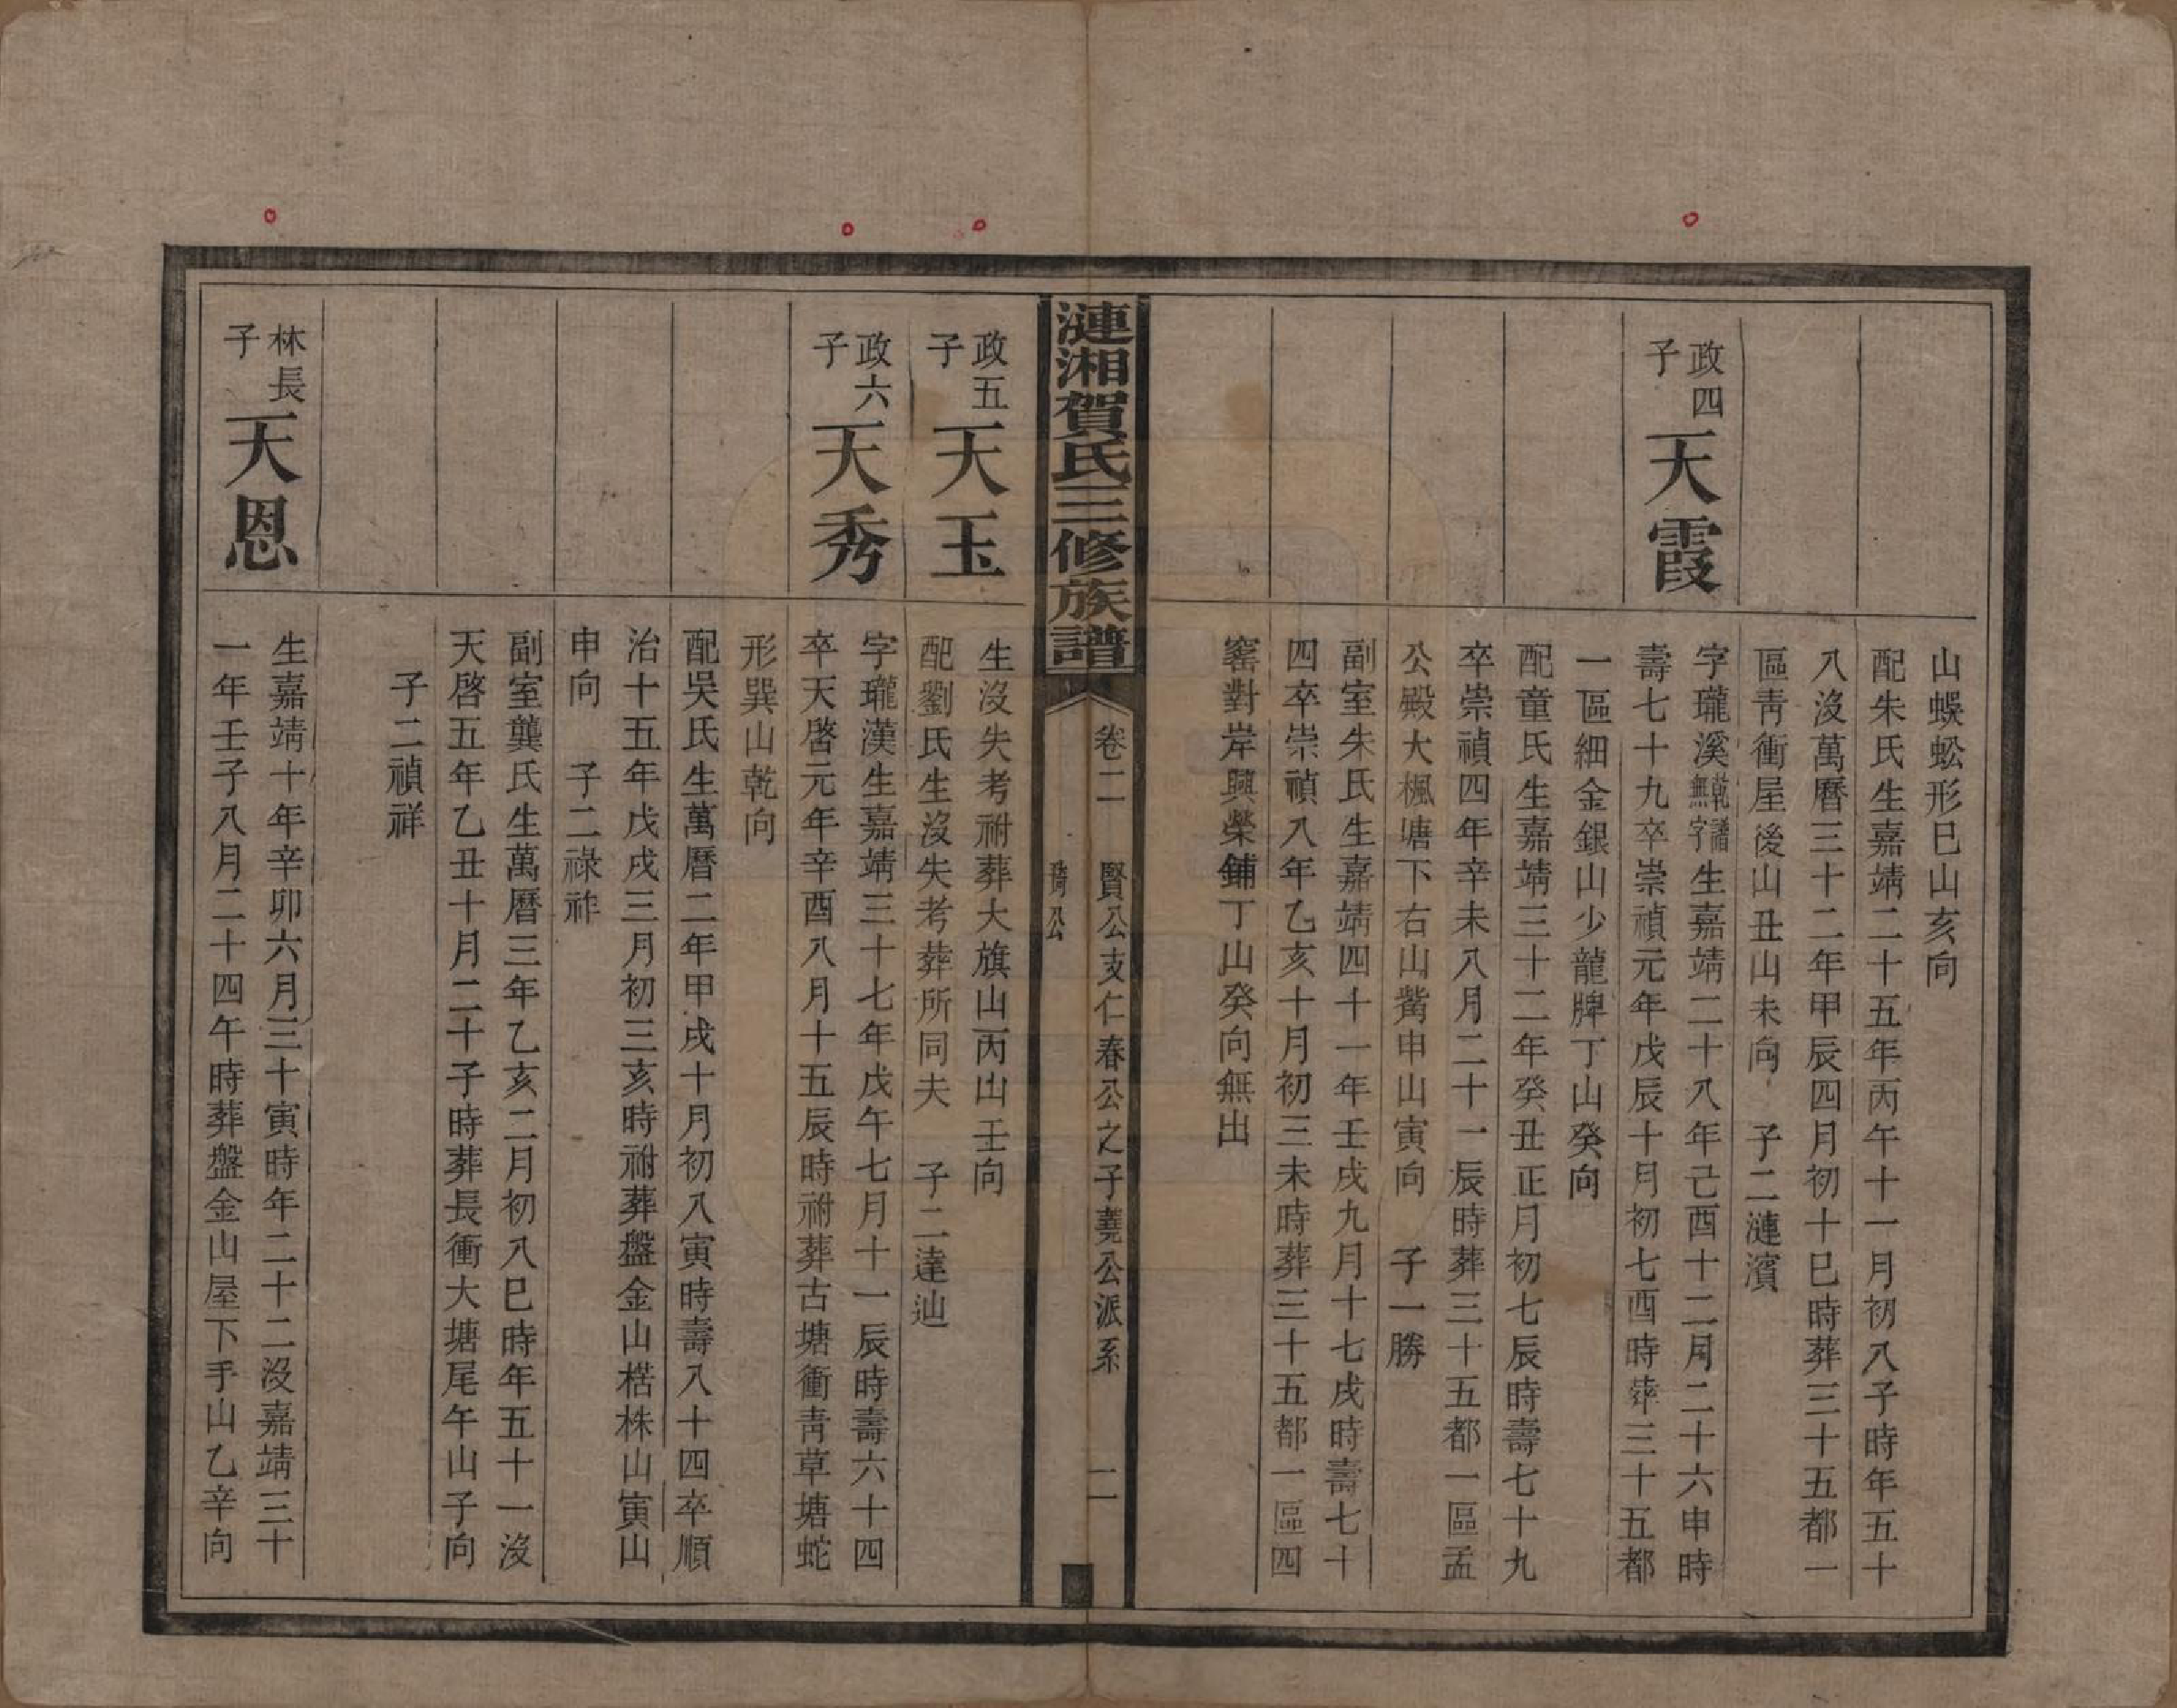 山蜈蚣形巳山亥向
配朱氏生嘉靖二十五年丙午十一月初八子時年五十
八沒萬曆三十二年甲辰四月初十巳時葬三十五都一
區靑衝屋後山丑山未向　子二漣濱
政四子
天霞
字瓏溪乾譜無字生嘉靖二十八年己酉十二月二十六申時
壽七十九卒崇禎元年戊辰十月初七酉時葬三十五都
一區細金銀山少龍牌丁山癸向
配童氏生嘉靖三十二年癸丑正月初七辰時壽七十九
卒崇禎四年辛未八月二十一辰時葬三十五都一區孟
公殿大楓塘下右山觜申山寅向　子一勝
副室朱氏生嘉靖四十一年壬戌九月十七戌時壽七十
四卒崇禎八年乙亥十月初三未時葬三十五都一區四
窰對岸興榮鋪丁山癸向無出
漣湘賀氏三修族譜
卷二
賢公支仁春公之子蕘公派系
琦公
二
政五子
天玉
生沒失考祔葬大旗山丙山壬向
配劉氏生沒失考葬所同夫　子二達辿
政六子
天秀
字瓏漢生嘉靖三十七年戊午七月十一辰時壽六十四
卒天啓元年辛酉八月十五辰時祔葬古塘衝靑草塘蛇
形巽山乾向
配吳氏生萬曆二年甲戌十月初八寅時壽八十四卒順
治十五年戊戌三月初三亥時祔葬盤金山楛株山寅山
申向　子二祿祚
副室龔氏生萬曆三年乙亥二月初八巳時年五十一沒
天啓五年乙丑十月二十子時葬長衝大塘尾午山子向
子二禎祥
林長子
天恩
生嘉靖十年辛卯六月三十寅時年二十二沒嘉靖三十
一年壬子八月二十四午時葬盤金山屋下手山乙辛向